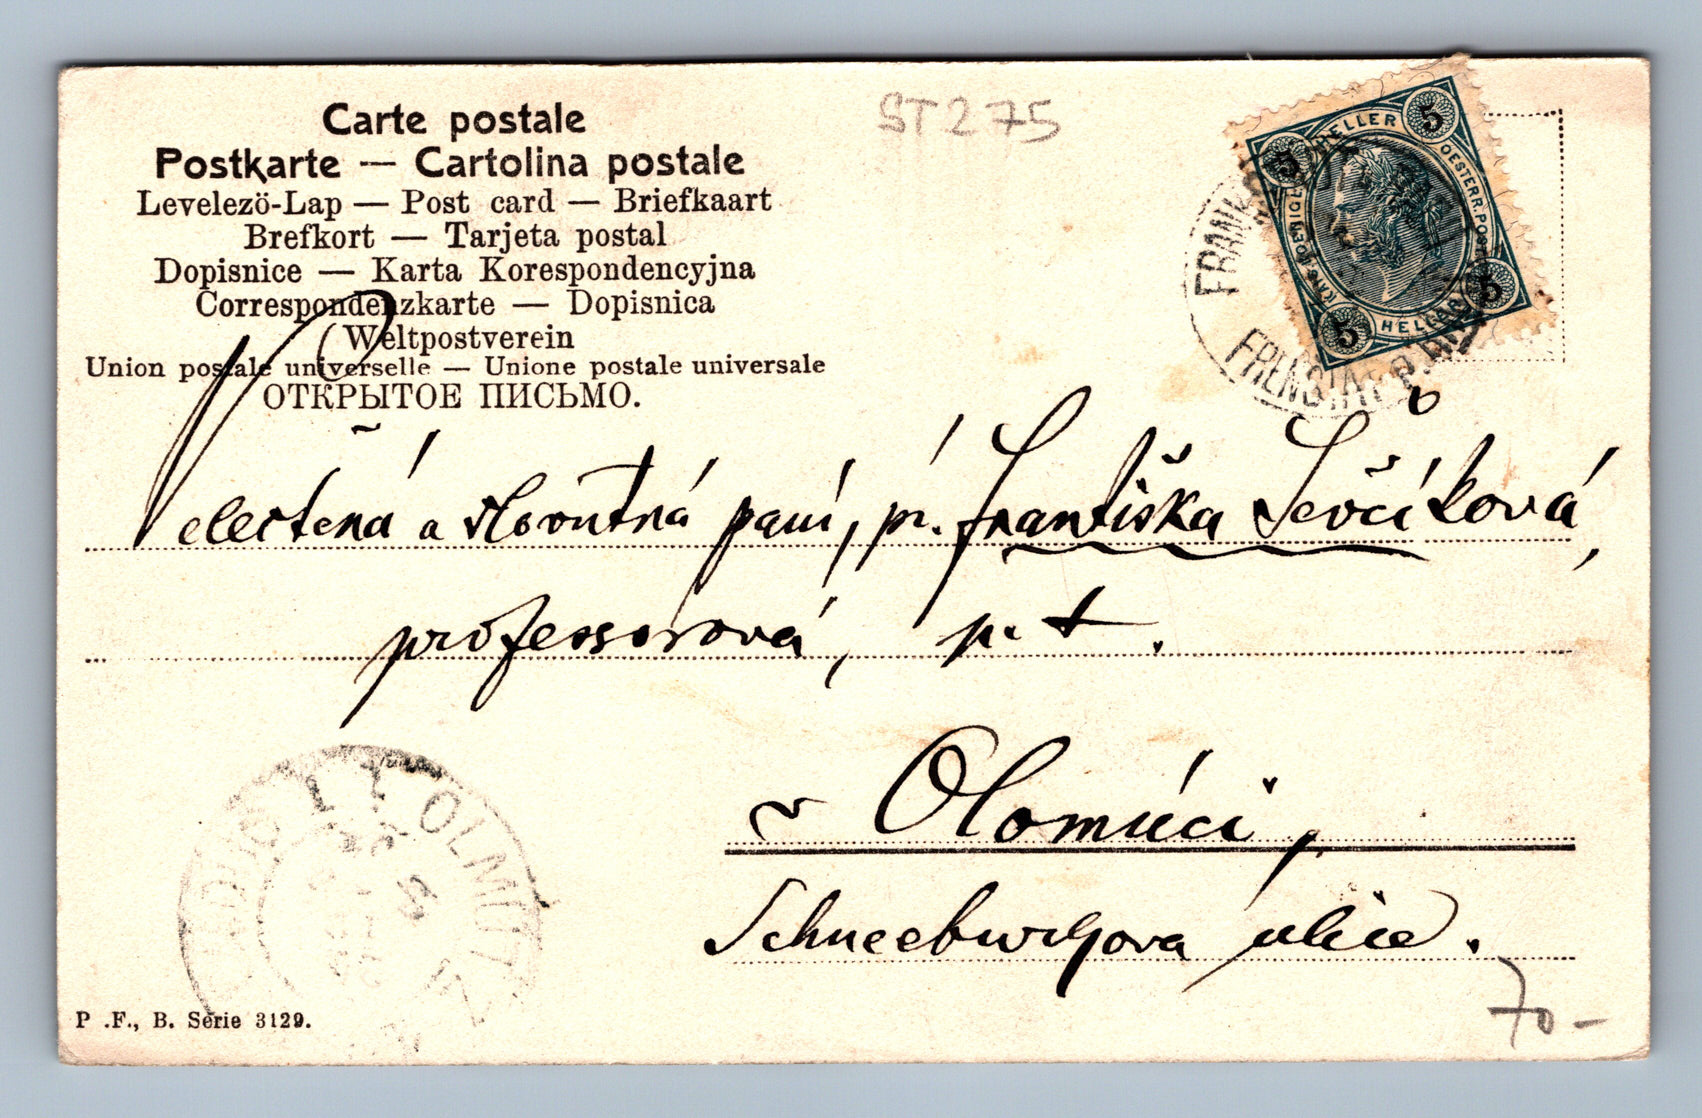 Carte postale
ST275
Postkarte — Cartolina postale
Levelezö-Lap — Post card — Briefkaart
Brefkort — Tarjeta postal
Dopisnice — Karta Korespondencyjna
Correspondenzkarte — Dopisnica
Weltpostverein
Union postale universelle — Unione postale universale
ОТКРЫТОЕ ПИСЬМО.
5 HELLER 5
OESTERR. POST
5 HELLER 5
FRENSTA
Velectěná a slovutná paní, pí. Františka Ševčíková,
professorová, p. t.
v Olomúci,
Schneeburgova ulice.
OLMÜTZ
P .F., B. Serie 3129.
70-